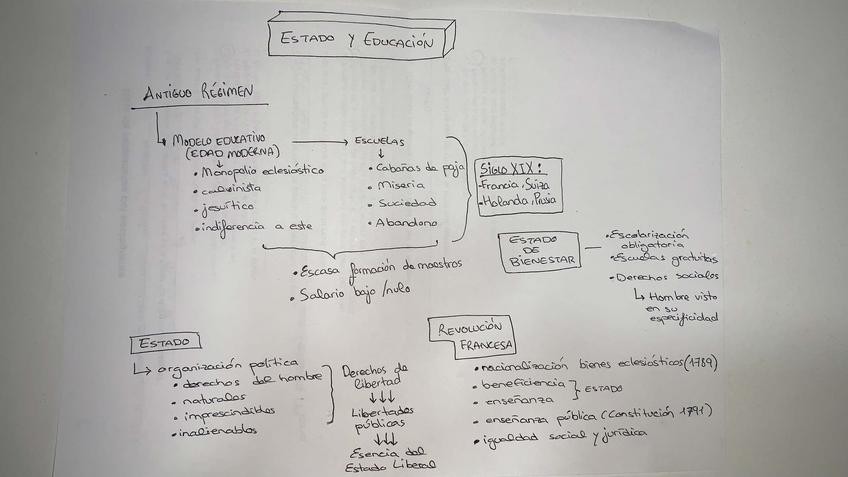 ESTADO Y EDUCACIÓN
ANTIGUO RÉGIMEN
MODELO EDUCATIVO
(EDAD MODERNA)
• Monopolio eclesiástico
• calvinista
• jesuítico
• indiferencia a este
ESCUELAS
• Cabañas de paja
• Miseria
• Suciedad
• Abandono
SIGLO XIX:
-Francia, Suiza
-Holanda, Prusia
• Escasa formación de maestros
• Salario bajo/nulo
ESTADO
DE
BIENESTAR
• Escolarización
obligatoria
• Escuelas gratuitas
• Derechos sociales
↳ Hombre visto
en su
especificidad
ESTADO
↳ organización política
• derechos del hombre
• naturales
• imprescindibles
• inalienables
Derechos de
libertad
↓↓↓
Libertades
públicas
↓↓↓
Esencia del
Estado Liberal
REVOLUCIÓN
FRANCESA
• nacionalización bienes eclesiásticos (1789)
• beneficiencia
• enseñanza
ESTADO
• enseñanza pública (Constitución 1791)
• igualdad social y jurídica